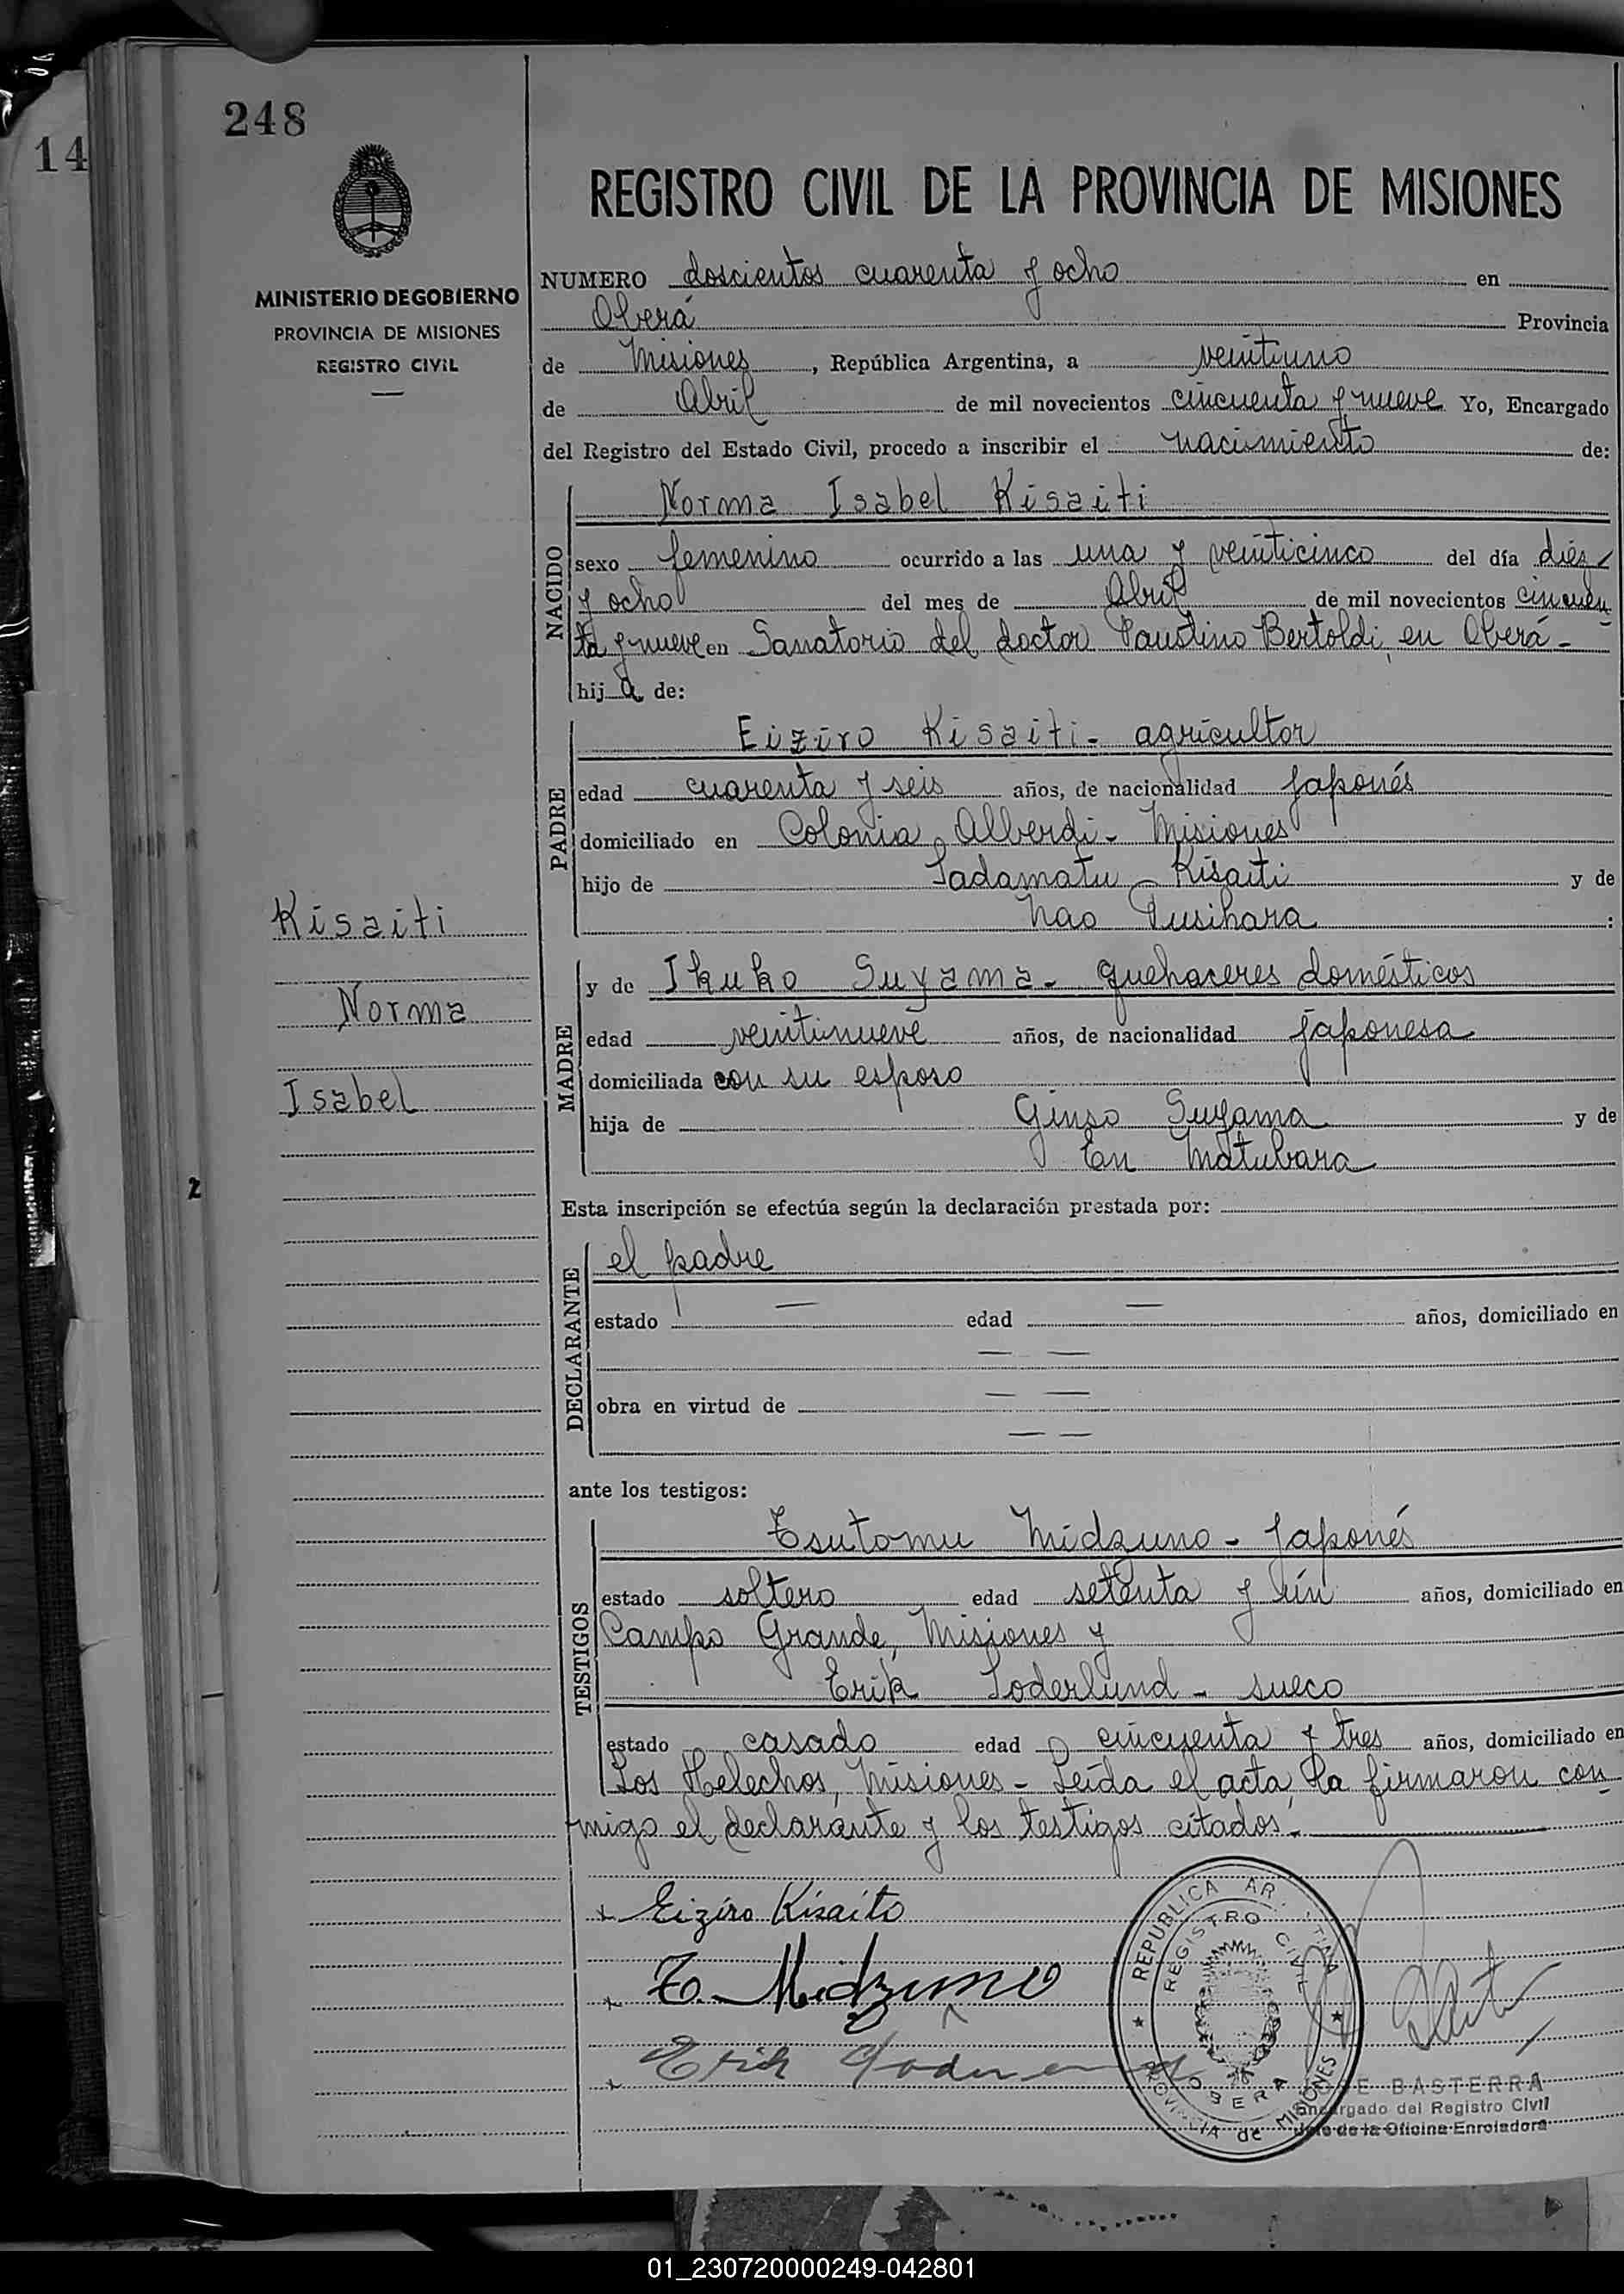 248
14
MINISTERIO DE GOBIERNO
PROVINCIA DE MISIONES
REGISTRO CIVIL
REGISTRO CIVIL DE LA PROVINCIA DE MISIONES
NUMERO doscientos cuarenta y ocho en
Oberá Provincia
de Misiones, República Argentina, a veintiuno
de Abril de mil novecientos cincuenta y nueve Yo, Encargado
del Registro del Estado Civil, procedo a inscribir el nacimiento de:
NACIDO
Norma Isabel Kisaiti
sexo femenino ocurrido a las una y veinticinco del día diez
y ocho del mes de Abril de mil novecientos cincuen
ta y nueve en Sanatorio del doctor Faustino Bertoldi, en Oberá-
hija de:
PADRE
Eiziro Kisaiti - agricultor
edad cuarenta y seis años, de nacionalidad japonés
domiciliado en Colonia Alberdi - Misiones
hijo de Sadamatu Kisaiti y de
Nao :
MADRE
y de Ikuko Suyama - quehaceres domésticos
edad veintinueve años, de nacionalidad japonesa
domiciliada con su esposo
hija de Ginso Suyama y de
En Matubara
Kisaiti
Norma
Isabel
2
Esta inscripción se efectúa según la declaración prestada por:
DECLARANTE
el padre
estado — edad — años, domiciliado en
— —
obra en virtud de — —
— —
ante los testigos:
TESTIGOS
Tsutomu Midzuno - japonés
estado soltero edad setenta y ún años, domiciliado en
Campo Grande, Misiones y
Erik Soderlund - sueco
estado casado edad cincuenta y tres años, domiciliado en
Los Helechos, Misiones - Leída el acta, la firmaron con
migo el declarante y los testigos citados.-
+ Eiziro Kisaito
+ T. Midzuno
+ Erik
REPUBLICA AR TINA
REGISTRO CIVIL
OBERA
PROVINCIA de MISIONES
E BASTERRA
Encargado del Registro Civil
Jefe de la Oficina Enroladora
01_230720000249-042801